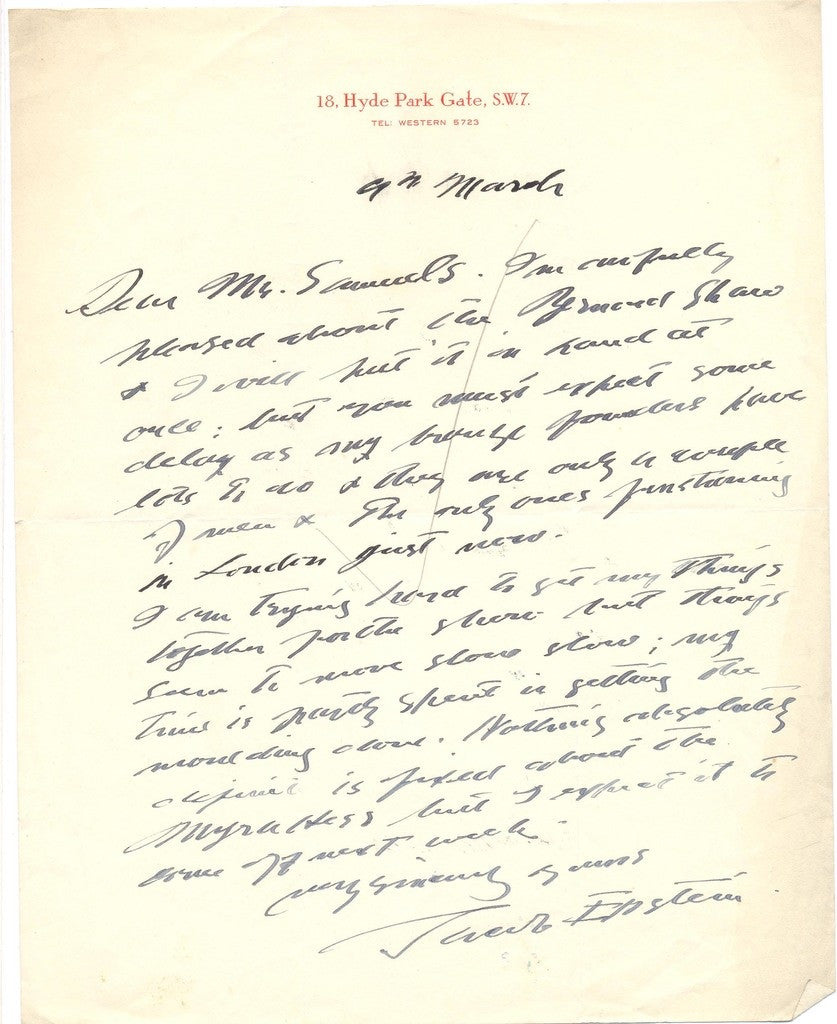 18, Hyde Park Gate, S.W.7.
TEL: WESTERN 5723
9th March
Dear Mr. Samuels. I'm awfully
pleased about the Bernard Shaw
& I will put it in hand at
once; but you must expect some
delay as my bronze founders have
lots to do & they are only a couple
of men & the only ones functioning
in London just now.
I am trying hard to get my things
together for the show but things
seem to move slow slow; my
time is partly spent in getting the
moulding done. Nothing absolutely
definite is fixed about the
Myra Hess but I expect it to
come off next week.
very sincerely yours
Jacob Epstein